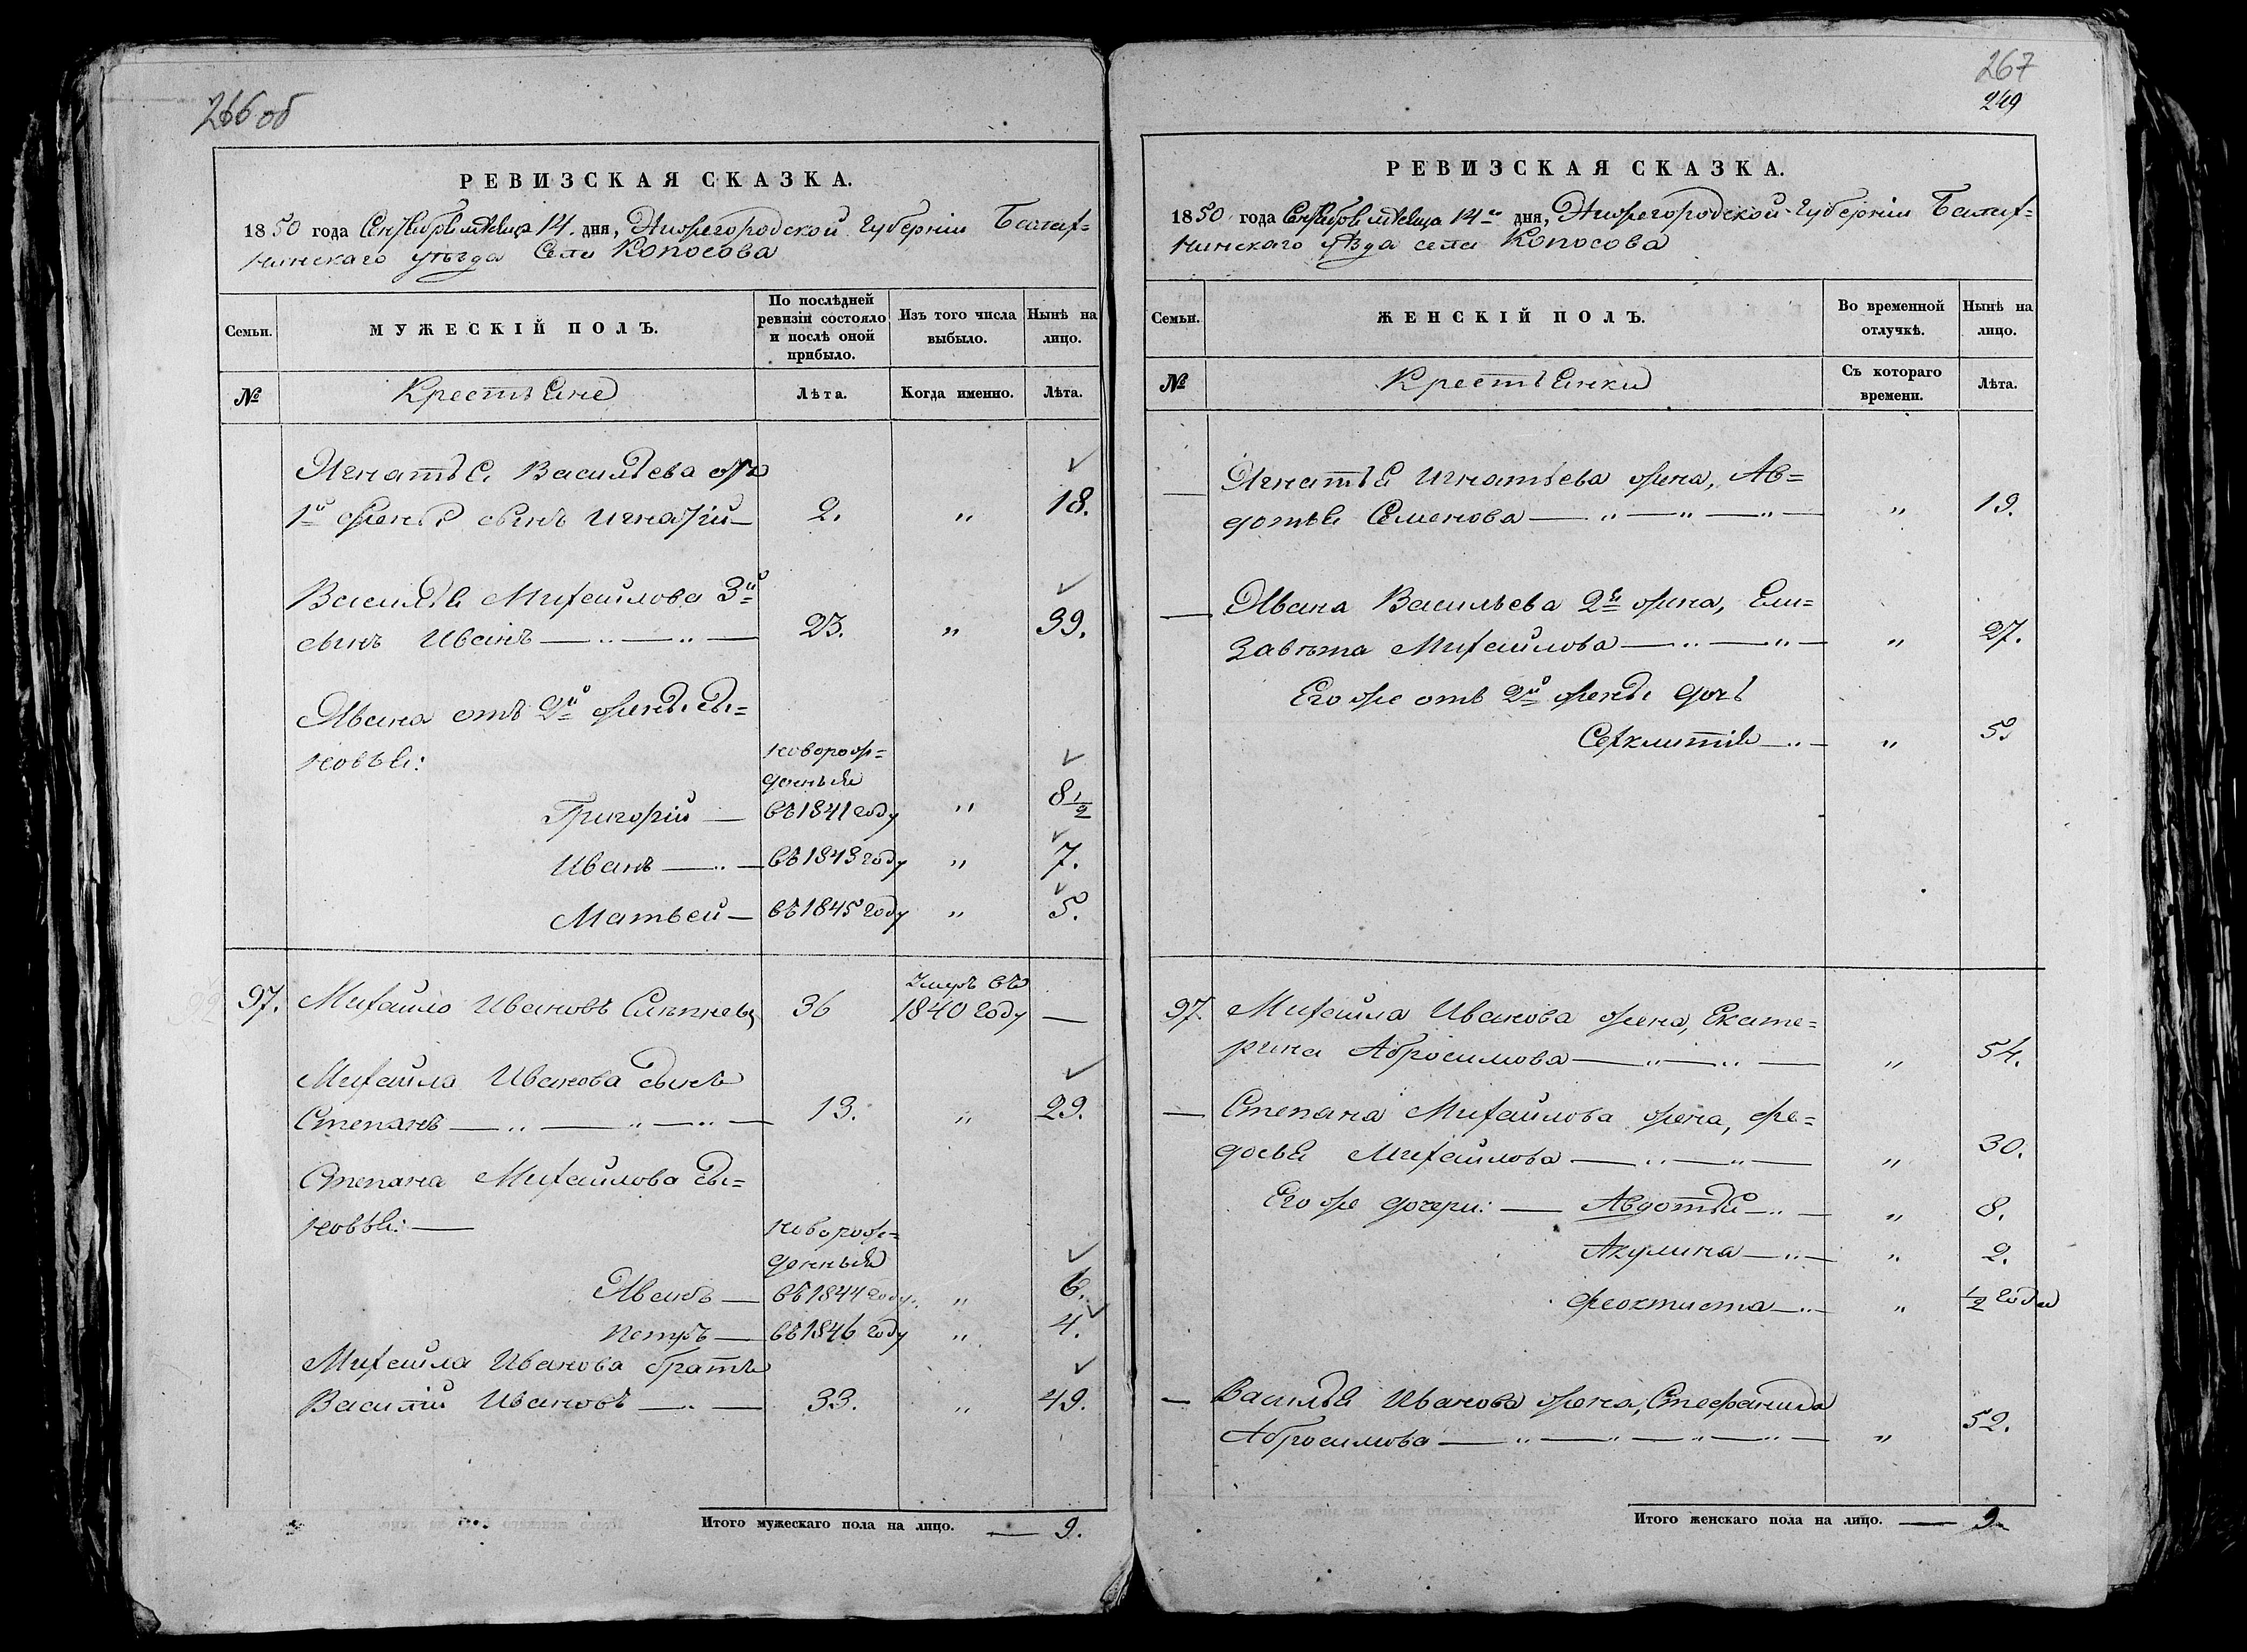 266 об
РЕВИЗСКАЯ СКАЗКА.
1850 года Сентября месяца 14. дня, Нижегородской Губерніи Балах=
нинскаго уѣзда Села Копосова
Семьи.
МУЖЕСКІЙ ПОЛЪ.
По послѣдней ревизіи состояло и послѣ оной прибыло.
Изъ того числа выбыло.
Нынѣ на лицо.
№
Крестьяне
Лѣта.
Когда именно.
Лѣта.
Игнатья Васильева отъ
1й жены сынъ Игнатій — 2. " 18.
Василья Михайлова 3й
сынъ Иванъ — " — " — 23. " 39.
Ивана отъ 2й жены сы=
новья:
новорож=
денныя
Григорій — въ 1841 году " 8 1/2
Иванъ — " — въ 1843 году " 7.
Матвей — въ 1845 году " 5.
97. Михайло Ивановъ 36
умръ въ
1840 году —
Михайла Иванова сынъ
Степанъ — " — " — " — 13. " 29.
Степана Михайлова сы=
новья: —
новорож=
денныя
Иванъ — въ 1844 году. " 6.
Петръ — въ 1846 году " 4.
Михайла Иванова братъ
Василій Ивановъ — " — 33. " 49.
Итого мужескаго пола на лицо. — 9.
267
249
РЕВИЗСКАЯ СКАЗКА.
1850 года Сентября месяца 14го дня, Нижегородской Губерніи Балах=
нинскаго уѣзда села Копосова
Семьи.
ЖЕНСКІЙ ПОЛЪ.
Во временной отлучкѣ.
Нынѣ на лицо.
№
Крестьянки
Съ котораго времени.
Лѣта.
— Игнатья Игнатьева жена, Ав=
дотья Семенова — " — " — " — " 19.
— Ивана Васильева 2я жена, Ели=
завѣта Михайлова — " — " — " 27.
Его же отъ 2й жены дочь
— " — " 5.
97. Михайла Иванова жена, Екате=
рина Абросимова — " — " — " 54.
— Степана Михайлова жена, Фе=
досья Михайлова — " — " — " 30.
Его же дочери: — Авдотья — " — " 8.
Акулина — " — " 2.
Феоктиста — " — " 1/2 года
— Василья Иванова жена, Стефанида
Абросимова — " — " — " — " — " 52.
Итого женскаго пола на лицо. — 9.